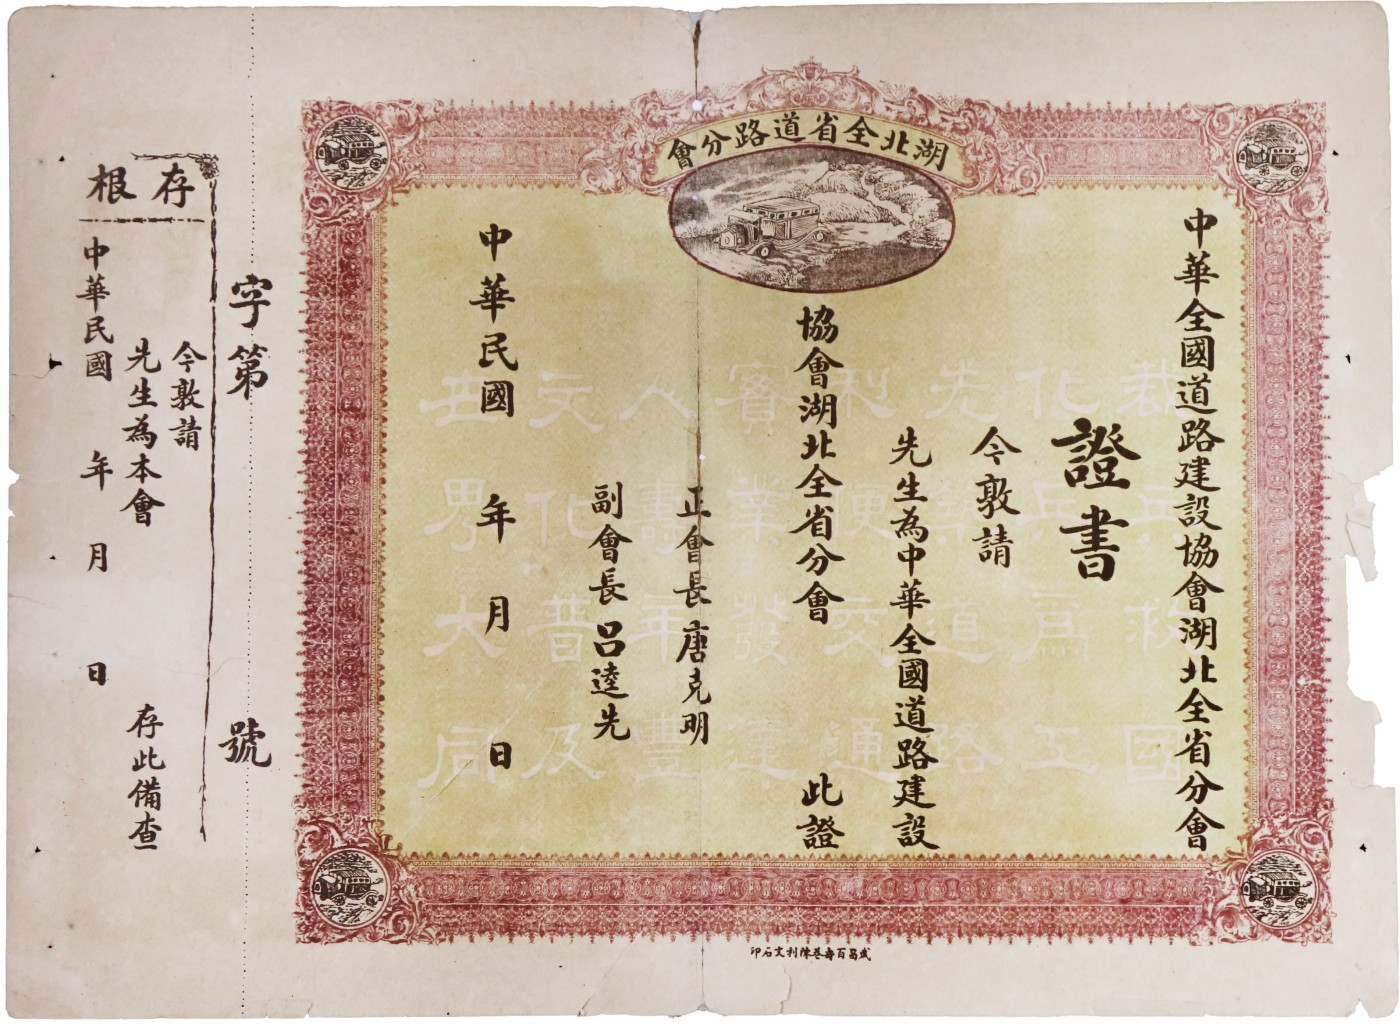 湖北全省道路分會
中華全國道路建設協會湖北全省分會
證書
今敦請
先生為中華全國道路建設
協會湖北全省分會 此證
正會長唐克明
副會長呂逵先
中華民國 年 月 日
裁兵救國
化兵為工
先築道路
利便交通
實業發達
人壽年豐
文化普及
世界大同
武昌百壽巷陳利文石印
字第 號
存根
今敦請
先生為本會 存此備查
中華民國 年 月 日